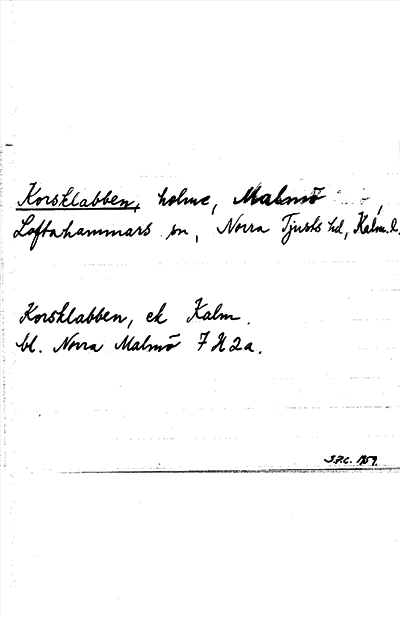 Korsklabben, holme, Malmö,
Loftahammars sn, Norra Tjusts hd, Kalm. l.
Korsklabben, ek Kalm.
bl. Norra Malmö 7 H 2 a.
1959.